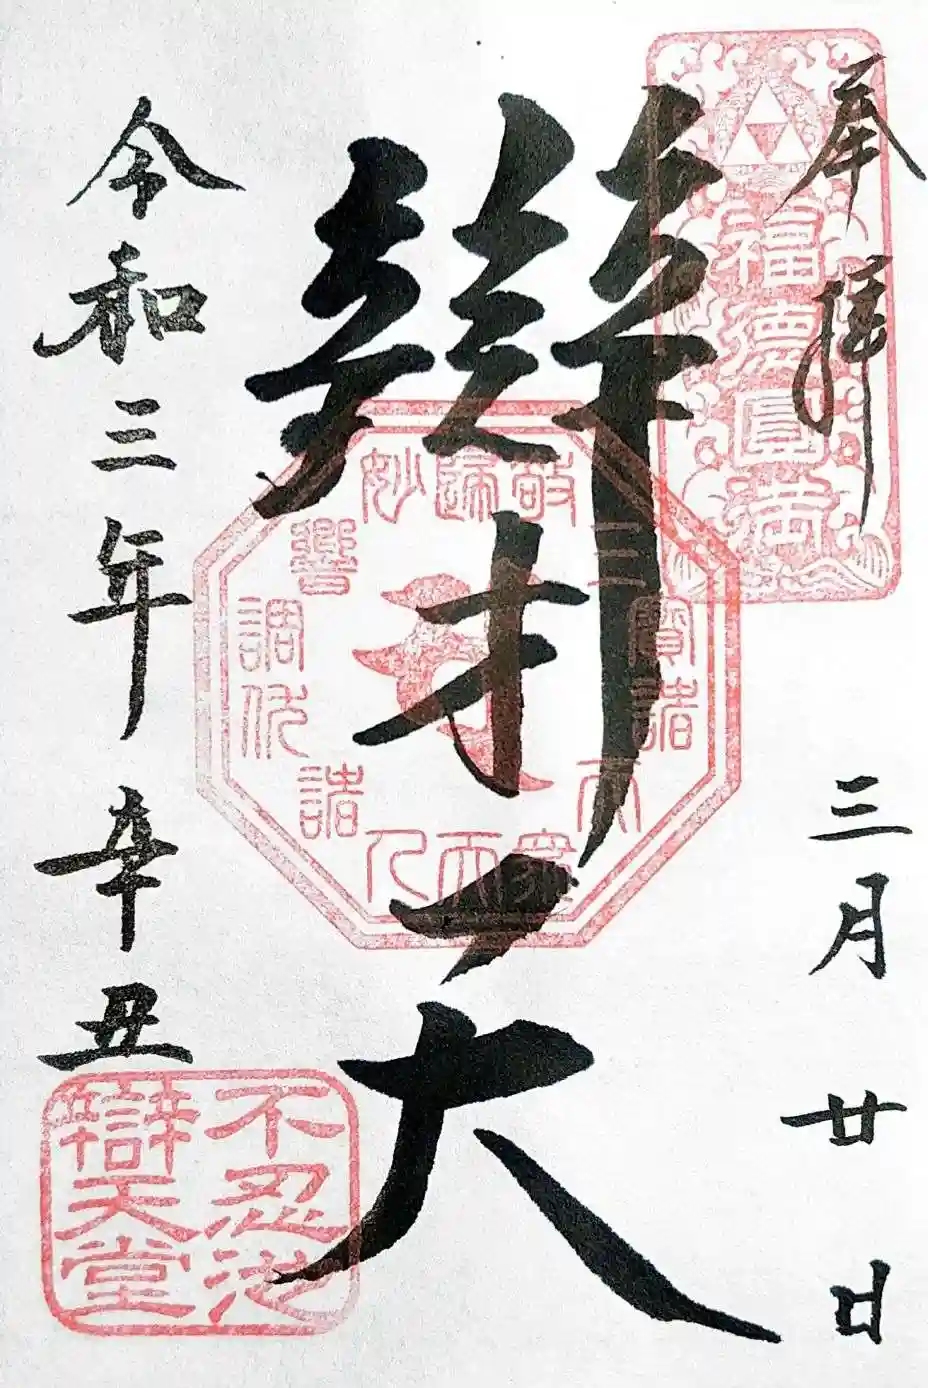 奉拝
福徳圓満
三月廿日
辯才天
令和三年 辛丑
不忍池
辯天堂